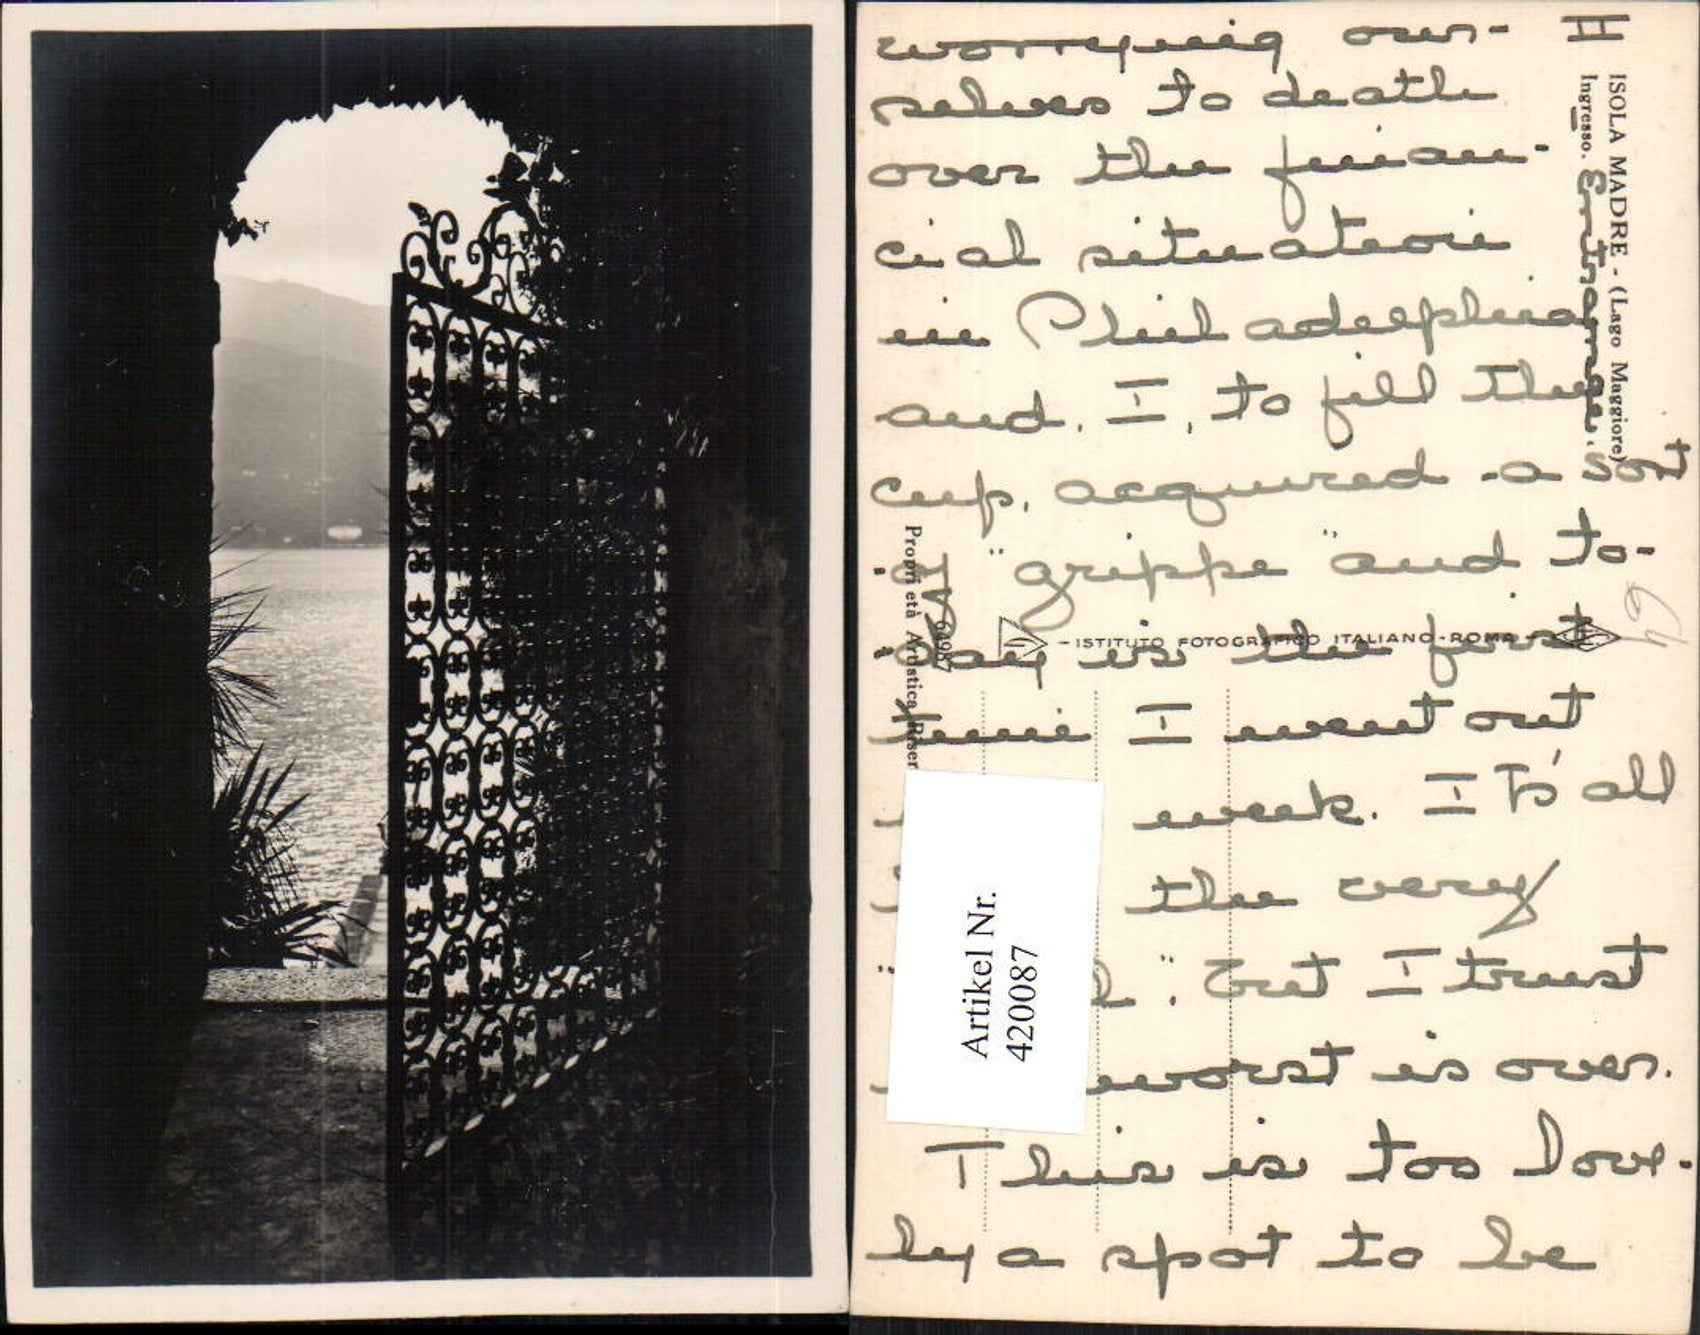 II
worrying our-
selves to death
over the finan-
cial situation
in Philadelphia
and, I, to fill the
cup, acquired a sort
of "grippe" and to-
day is the first
time I went out
week. It's all
the very
". but I trust
worst is over.
This is too love-
ly a spot to be
ISOLA MADRE - (Lago Maggiore)
Ingresso. Entrance.
Proprietà Artistica Riser
- ISTITUTO FOTOGRAFICO ITALIANO - ROMA -
64
Artikel Nr.
420087